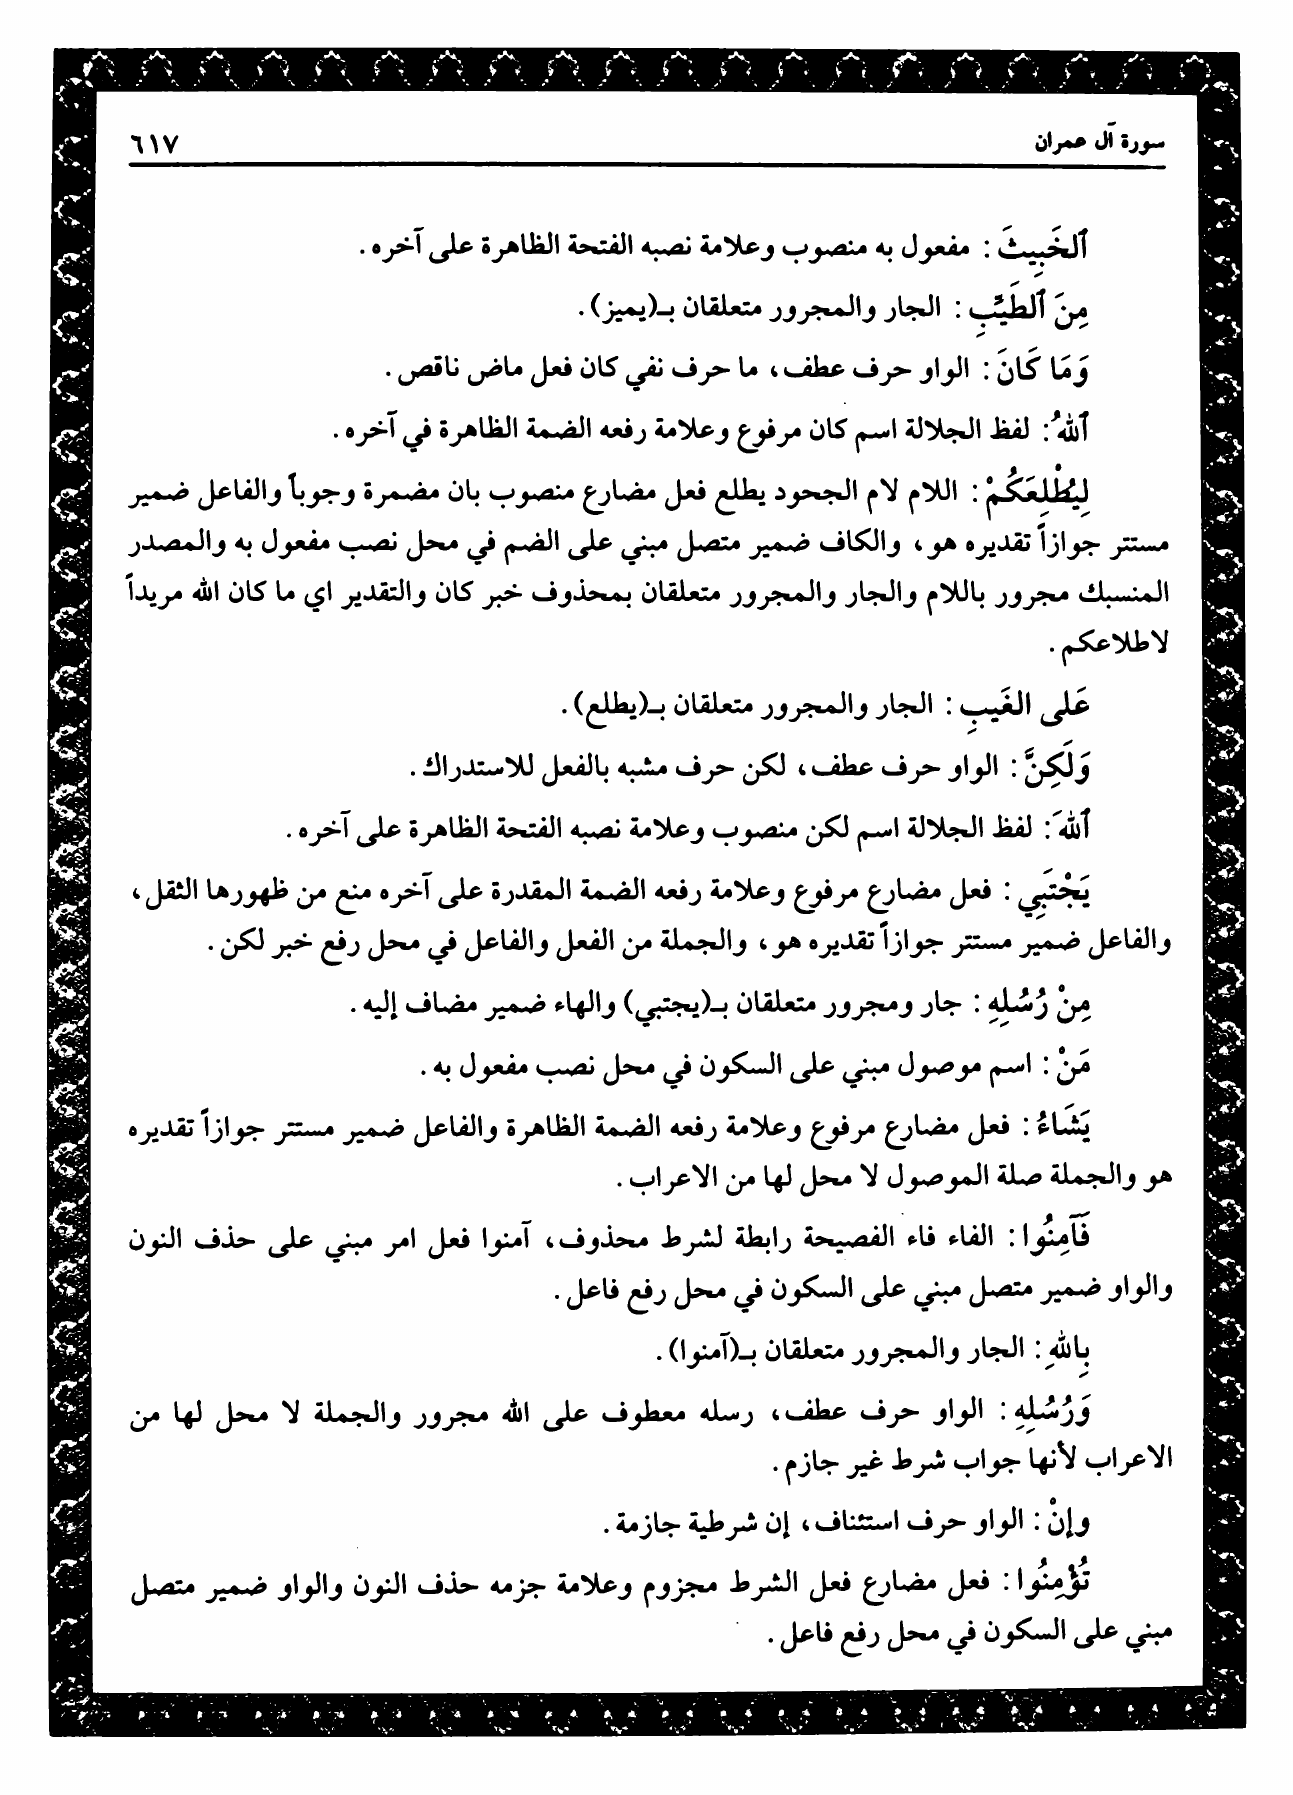 سورة آل عمران ٦١٧
ٱلخَبِيثَ: مفعول به منصوب وعلامة نصبه الفتحة الظاهرة على آخره.
مِنَ ٱلطَيِّبِ: الجار والمجرور متعلقان بـ(يميز).
وَمَا كَانَ: الواو حرف عطف، ما حرف نفي كان فعل ماض ناقص.
ٱللهُ: لفظ الجلالة اسم كان مرفوع وعلامة رفعه الضمة الظاهرة في آخره.
لِيُطْلِعَكُمْ: اللام لام الجحود يطلع فعل مضارع منصوب بان مضمرة وجوباً والفاعل ضمير
مستتر جوازاً تقديره هو، والكاف ضمير متصل مبني على الضم في محل نصب مفعول به والمصدر
المنسبك مجرور باللام والجار والمجرور متعلقان بمحذوف خبر كان والتقدير اي ما كان الله مريداً
لاطلاعكم.
عَلى الغَيبِ: الجار والمجرور متعلقان بـ(يطلع).
وَلَكِنَّ: الواو حرف عطف، لكن حرف مشبه بالفعل للاستدراك.
ٱللهَ: لفظ الجلالة اسم لكن منصوب وعلامة نصبه الفتحة الظاهرة على آخره.
يَجْتَبِي: فعل مضارع مرفوع وعلامة رفعه الضمة المقدرة على آخره منع من ظهورها الثقل،
والفاعل ضمير مستتر جوازاً تقديره هو، والجملة من الفعل والفاعل في محل رفع خبر لكن.
مِنْ رُسُلِهِ: جار ومجرور متعلقان بـ(يجتبي) والهاء ضمير مضاف إليه.
مَنْ: اسم موصول مبني على السكون في محل نصب مفعول به.
يَشَاءُ: فعل مضارع مرفوع وعلامة رفعه الضمة الظاهرة والفاعل ضمير مستتر جوازاً تقديره
هو والجملة صلة الموصول لا محل لها من الاعراب.
فَآمِنُوا: الفاء فاء الفصيحة رابطة لشرط محذوف، آمنوا فعل امر مبني على حذف النون
والواو ضمير متصل مبني على السكون في محل رفع فاعل.
بِاللهِ: الجار والمجرور متعلقان بـ(آمنوا).
وَرُسُلِهِ: الواو حرف عطف، رسله معطوف على الله مجرور والجملة لا محل لها من
الاعراب لأنها جواب شرط غير جازم.
وإنْ: الواو حرف استئناف، إن شرطية جازمة.
تُؤْمِنُوا: فعل مضارع فعل الشرط مجزوم وعلامة جزمه حذف النون والواو ضمير متصل
مبني على السكون في محل رفع فاعل.